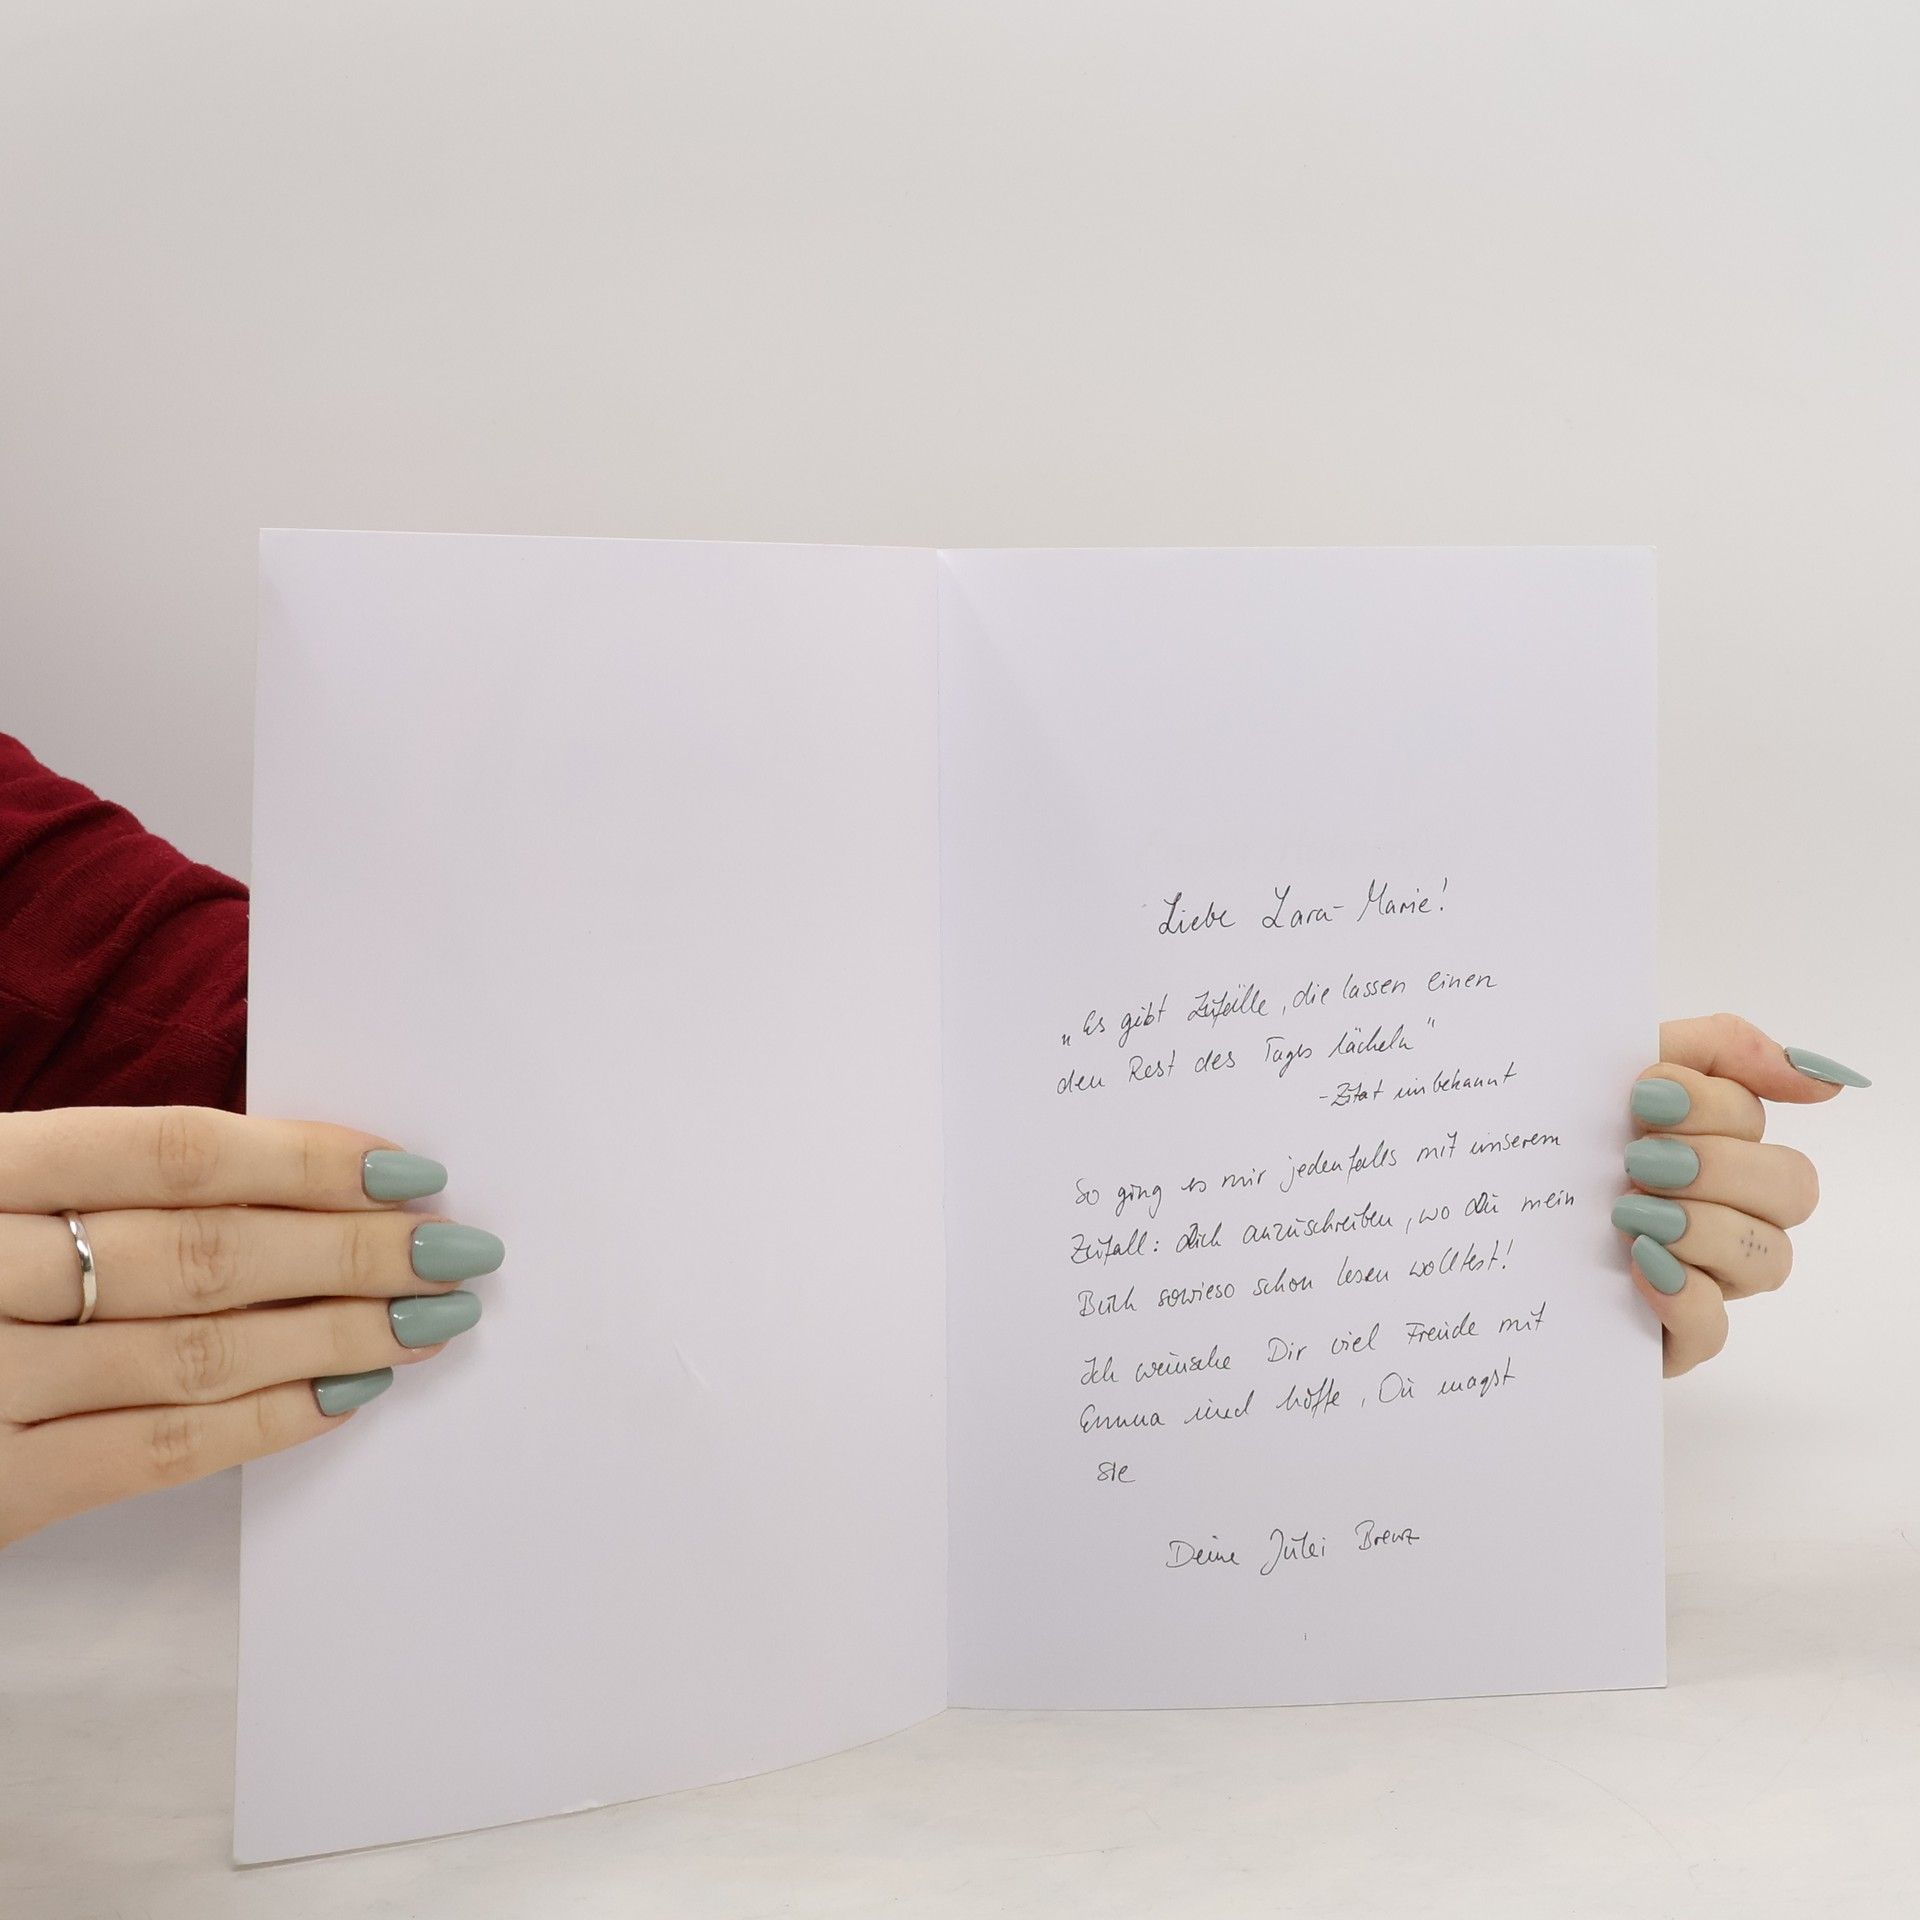 Liebe Lara-Marie!
„Es gibt Zufälle, die lassen einen
den Rest des Tages lächeln"
- Zitat unbekannt
So ging es mir jedenfalls mit unserem
Zufall: dich anzuschreiben, wo du mein
Buch sowieso schon lesen wolltest!
Ich wünsche Dir viel Freude mit
Emma und hoffe, Du magst
sie
Deine Julei Brenz